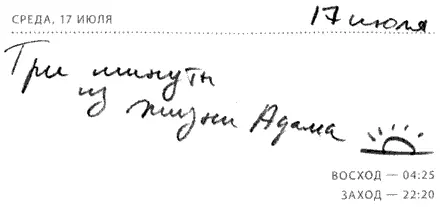 СРЕДА, 17 ИЮЛЯ
17 июля
Три минуты
из жизни Адама
ВОСХОД — 04:25
ЗАХОД — 22:20